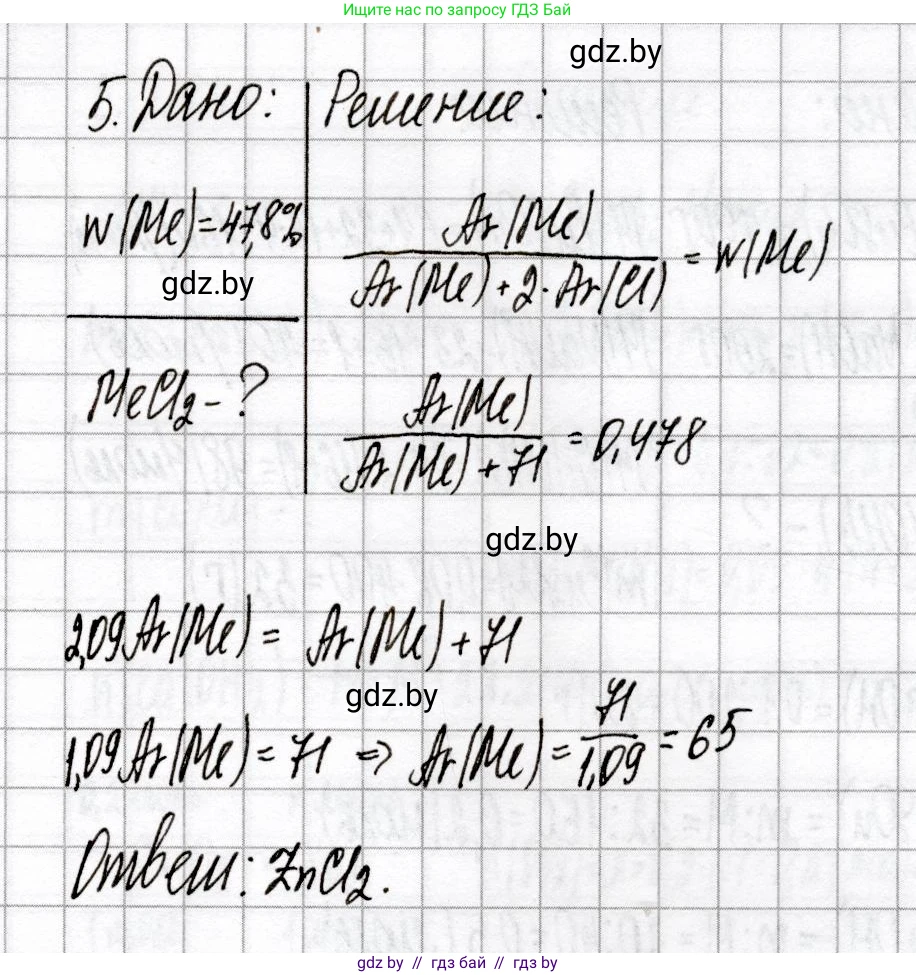 Ищите нас по запросу ГДЗ Бай
gdz.by
5. Дано:
Решение:
w(Me)=47,8%
gdz.by
MeCl2 - ?
Ar(Me)
Ar(Me) + 2 · Ar(Cl)
= w(Me)
Ar(Me)
Ar(Me) + 71
= 0,478
gdz.by
2,09Ar(Me) = Ar(Me) + 71
gdz.by
1,09Ar(Me) = 71 => Ar(Me) = 71/1,09 = 65
Ответ: ZnCl2.
gdz.by // гдз бай // гдз by